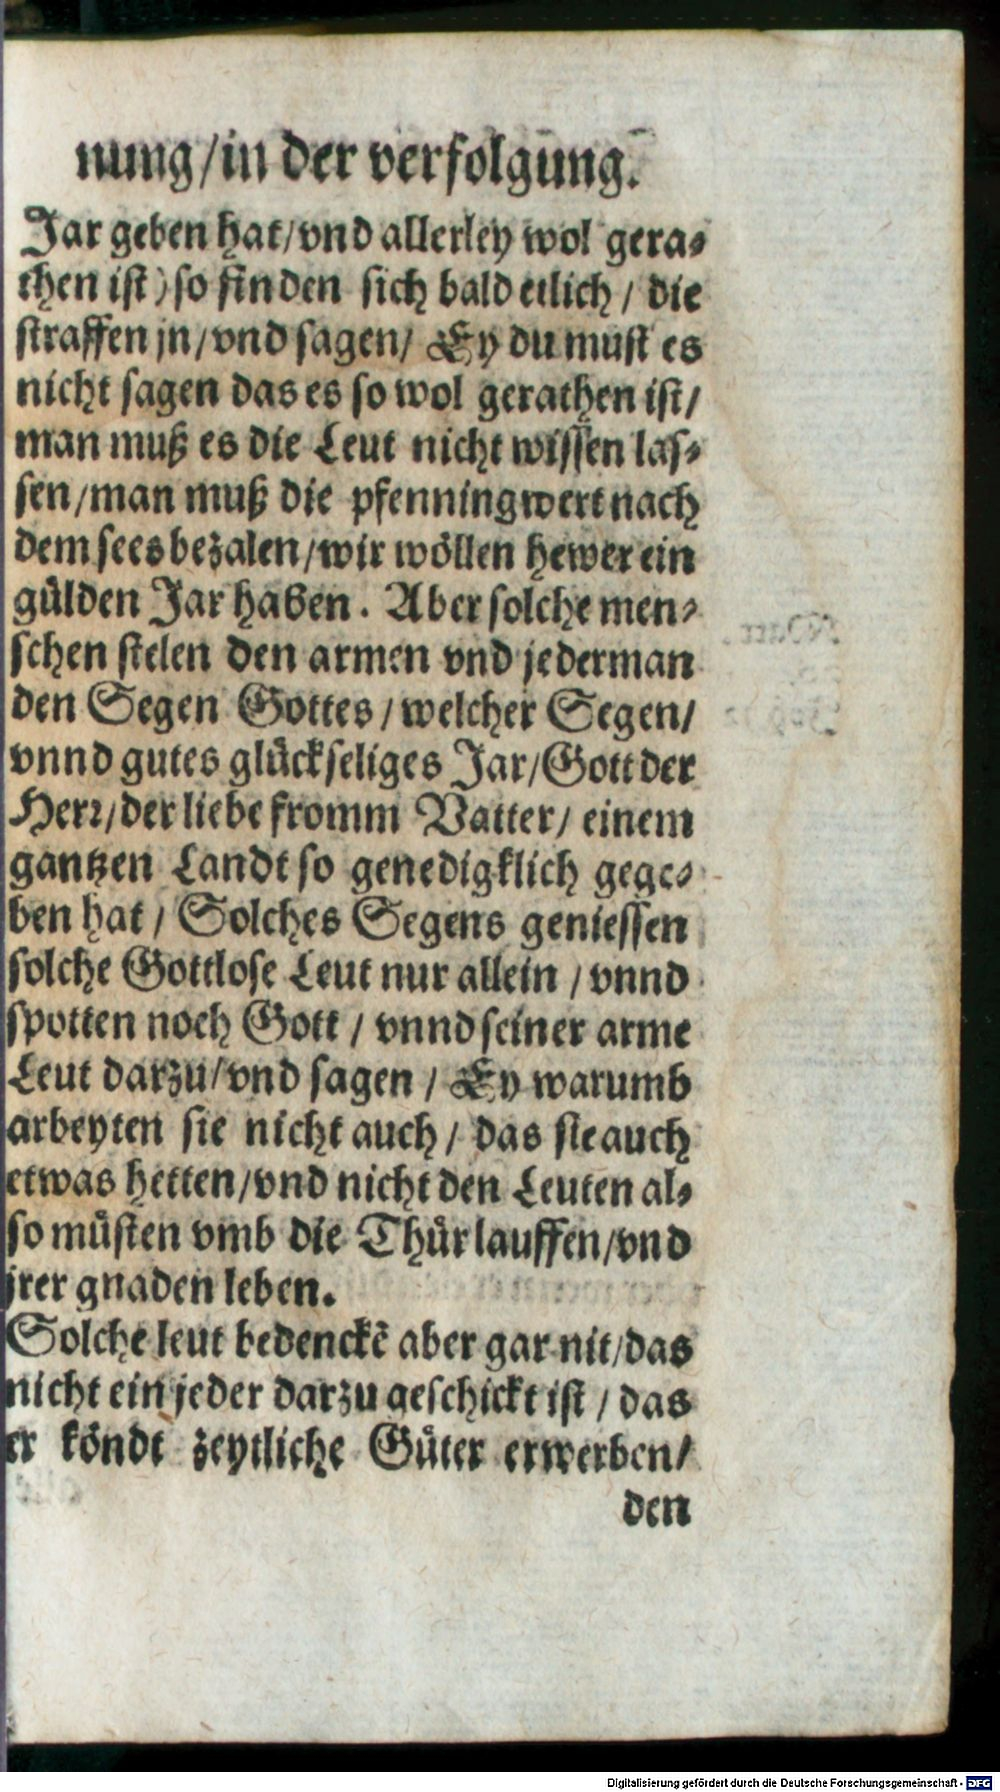 nung/in der verfolgung.
Jar geben hat/vnd allerley wol gera⸗
then ist/so finden sich bald etlich/ die
straffen jn/vnd sagen/ Ey du must es
nicht sagen das es so wol gerathen ist/
man muß es die Leut nicht wissen las⸗
sen/man muß die pfenningwert nach
dem sees bezalen/wir wöllen hewer ein
gülden Jar haben. Aber solche men⸗
schen stelen den armen vnd jederman
den Segen Gottes/welcher Segen/
vnnd gutes glückseliges Jar/Gott der
Herr/der liebe fromm Vatter/ einem
gantzen Landt so genedigklich gege⸗
ben hat/ Solches Segens geniessen
solche Gottlose Leut nur allein/vnnd
spotten noch Gott/vnnd seiner arme
Leut darzu/vnd sagen/ Ey warumb
arbeyten sie nicht auch/ das sie auch
etwas hetten/vnd nicht den Leuten al⸗
so müsten vmb die Thür lauffen/vnd
jrer gnaden leben.
Solche leut bedenckē aber gar nit/das
nicht ein jeder darzu geschickt ist/ das
er köndt zeytliche Güter erwerben/
den
Digitalisierung gefördert durch die Deutsche Forschungsgemeinschaft - DFG